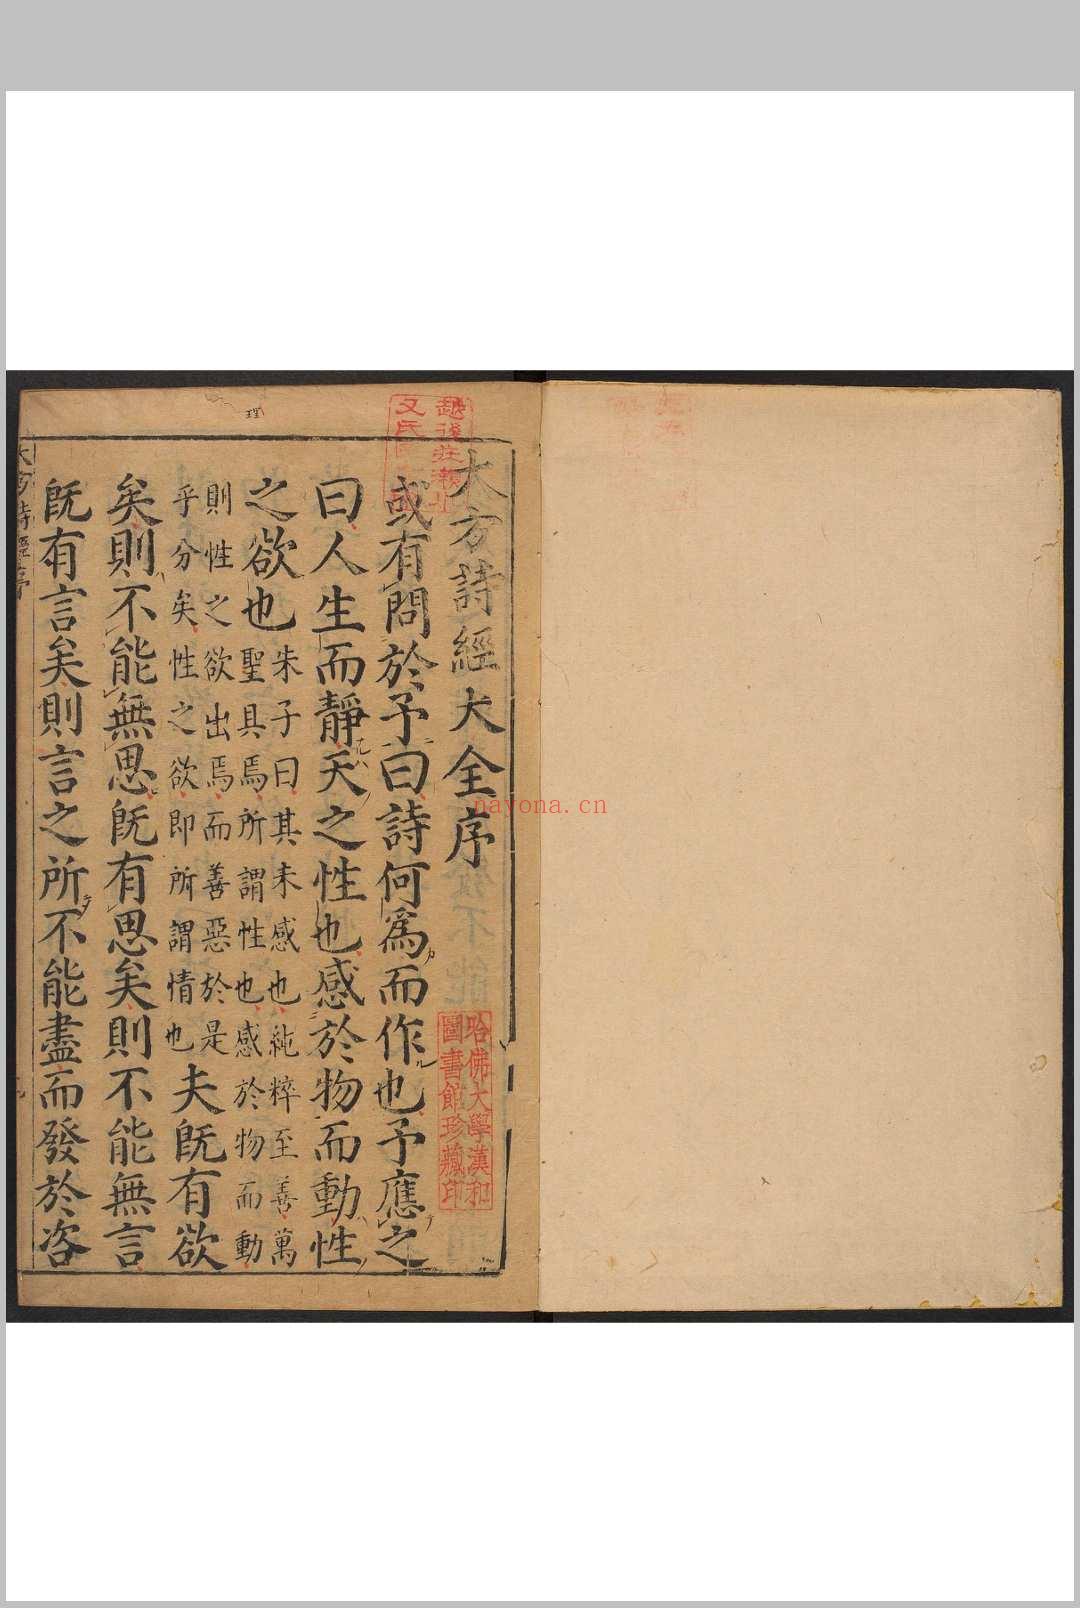 大方詩經大全序
或有問於予曰詩何爲而作也予應之
曰人生而靜天之性也感於物而動性
之欲也
朱子曰其未感也純粹至善萬
聖具焉所謂性也感於物而動
則性之欲出焉而善惡於是
乎分矣性之欲即所謂情也
夫旣有欲
矣則不能無思旣有思矣則不能無言
旣有言矣則言之所不能盡而發於咨
理
越後莊瀬
文氏
哈佛大學漢和
圖書館珍藏印
nayona.cn